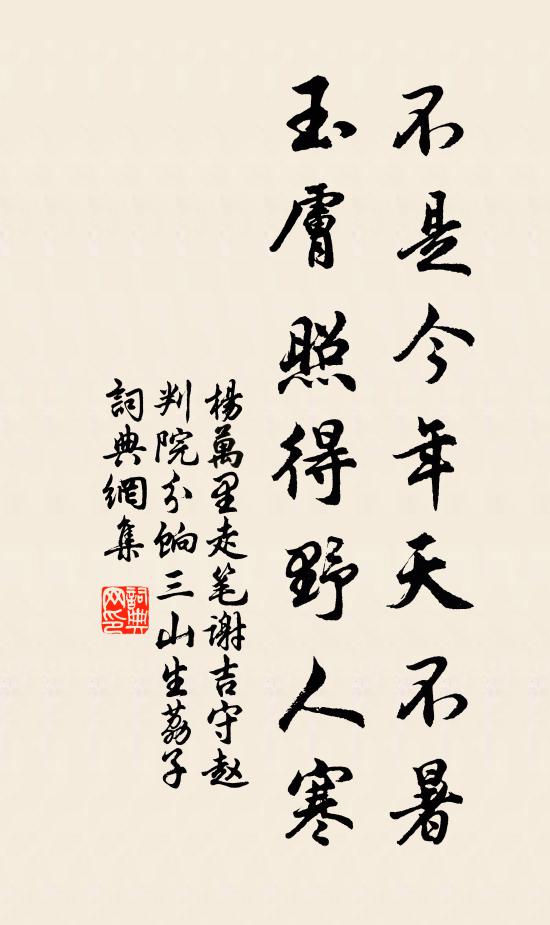 不是今年天不暑
玉膚照得野人寒
楊萬里走笔谢吉守赵
判院分餉三山生荔子
詞典網集
詞典网印